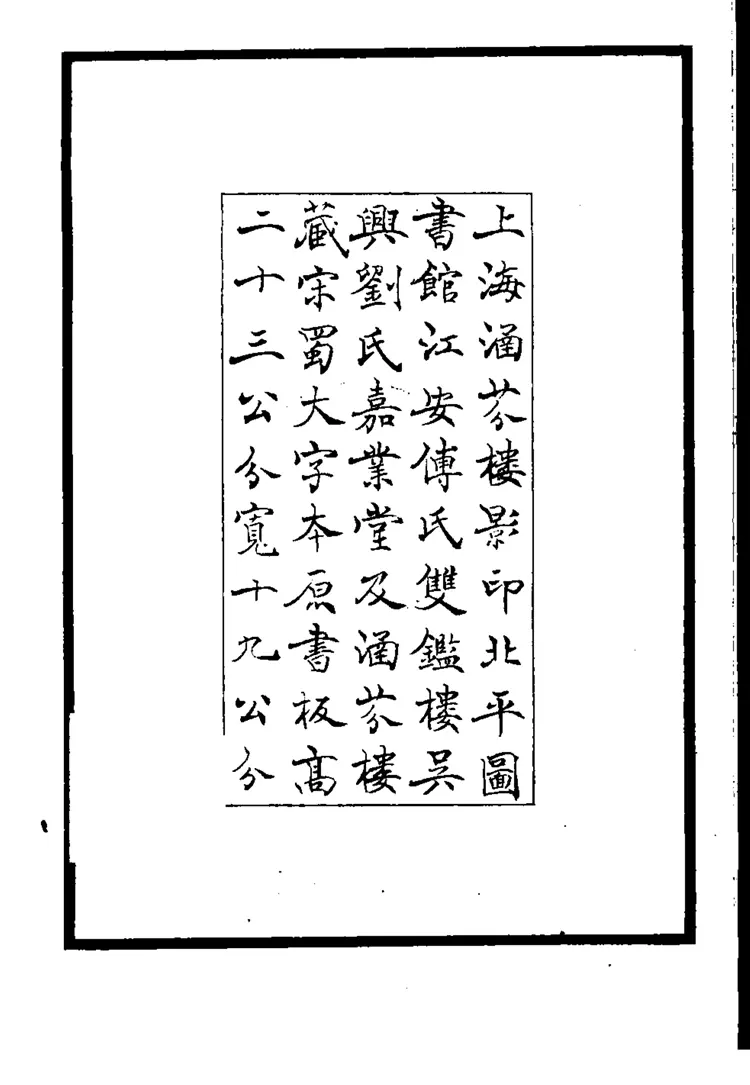 上海涵芬樓影印北平圖
書館江安傅氏雙鑑樓吳
興劉氏嘉業堂及涵芬樓
藏宋蜀大字本原書板高
二十三公分寬十九公分